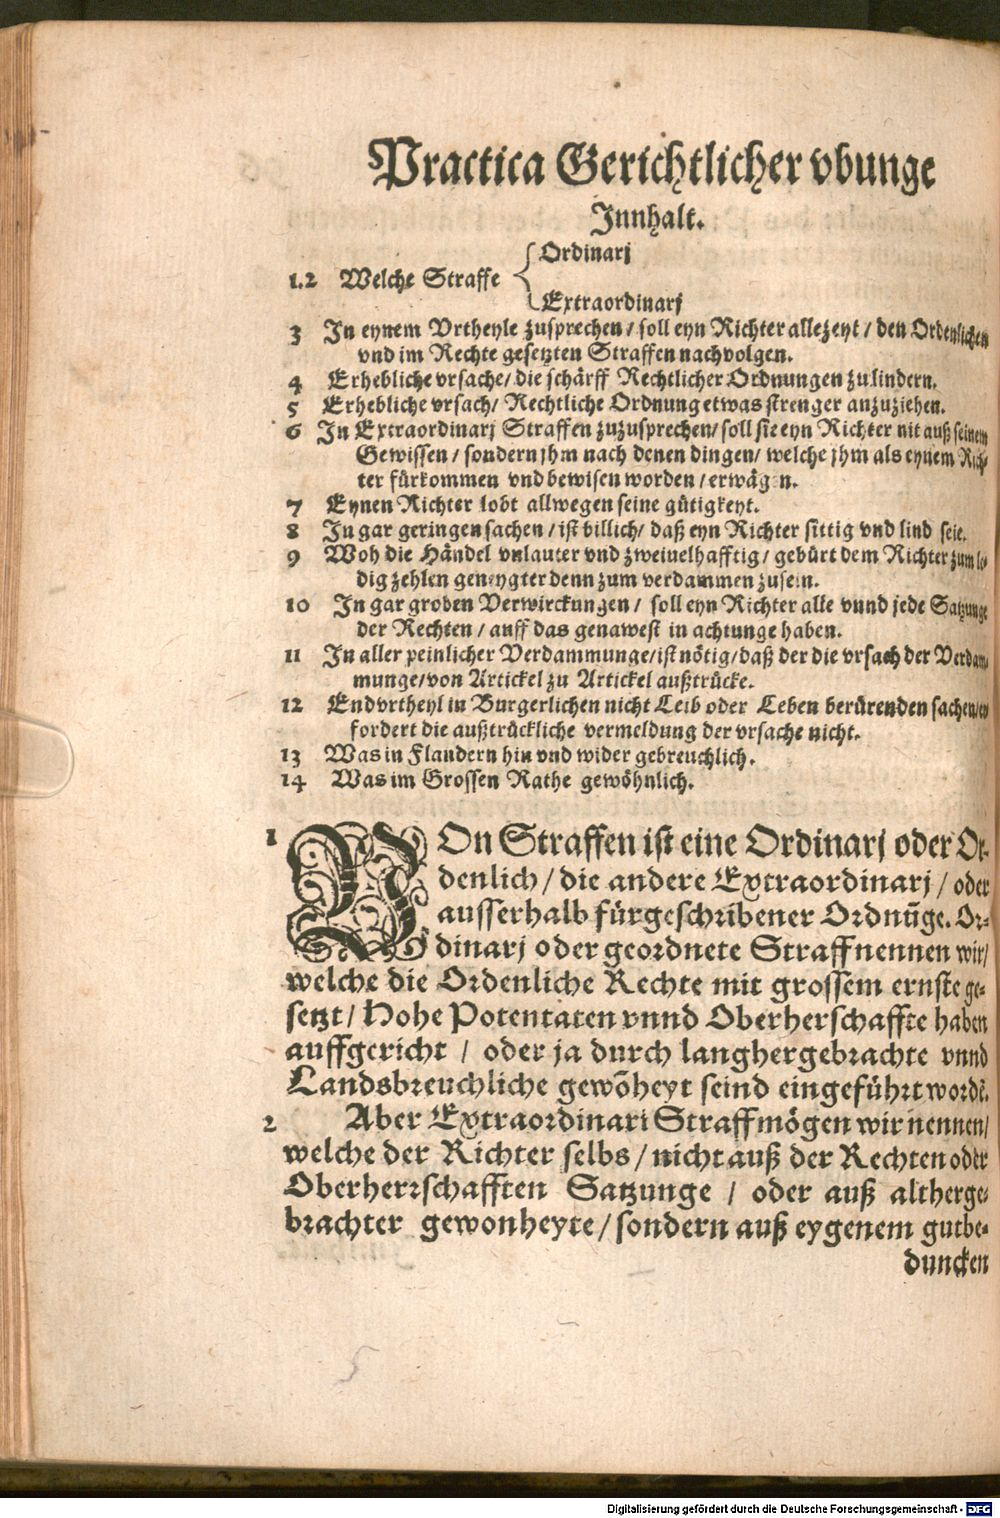 Practica Gerichtlicher vbunge
Innhalt.
Ordinarj
1.2 Welche Straffe
Extraordinarj
3 In eynem Vrtheyle zusprechen / soll eyn Richter allezeyt / den Ordenlichen
vnd im Rechte gesetzten Straffen nachvolgen.
4 Erhebliche vrsache / die schärff Rechtlicher Ordnungen zu lindern.
5 Erhebliche vrsach / Rechtliche Ordnung etwas strenger anzuziehen.
6 In Extraordinarj Straffen zuzusprechen / soll sie eyn Richter nit auß seinem
Gewissen / sondern jhm nach denen dingen / welche jhm als eynem Rich-
ter fürkommen vnd bewisen worden / erwägen.
7 Eynen Richter lobt allwegen seine gütigkeyt.
8 In gar geringen sachen / ist billich / daß eyn Richter sittig vnd lind seie.
9 Woh die Händel vnlauter vnd zweiuelhafftig / gebürt dem Richter zum le-
dig zehlen geneygter denn zum verdammen zusein.
10 In gar groben Verwirckungen / soll eyn Richter alle vnnd jede Satzunge
der Rechten / auff das genawest in achtunge haben.
11 In aller peinlicher Verdammunge / ist nötig / daß der die vrsach der Verdam-
munge / von Artickel zu Artickel außtrücke.
12 Endvrtheyl in Burgerlichen nicht Leib oder Leben berürenden sachen / er-
fordert die außtrückliche vermeldung der vrsache nicht.
13 Was in Flandern hin vnd wider gebreuchlich.
14 Was im Grossen Rathe gewöhnlich.
1 VOn Straffen ist eine Ordinarj oder Or-
denlich / die andere Extraordinarj / oder
ausserhalb fürgeschribener Ordnũge. Or-
dinarj oder geordnete Straff nennen wir /
welche die Ordenliche Rechte mit grossem ernste ge-
setzt / Hohe Potentaten vnnd Oberherschaffte haben
auffgericht / oder ja durch langhergebrachte vnnd
Landsbreuchliche gewõheyt seind eingeführt wordẽ.
2 Aber Extraordinari Straff mögen wir nennen /
welche der Richter selbs / nicht auß der Rechten oder
Oberherrschafften Satzunge / oder auß altherge-
brachter gewonheyte / sondern auß eygenem gutbe-
duncken
Digitalisierung gefördert durch die Deutsche Forschungsgemeinschaft - DFG